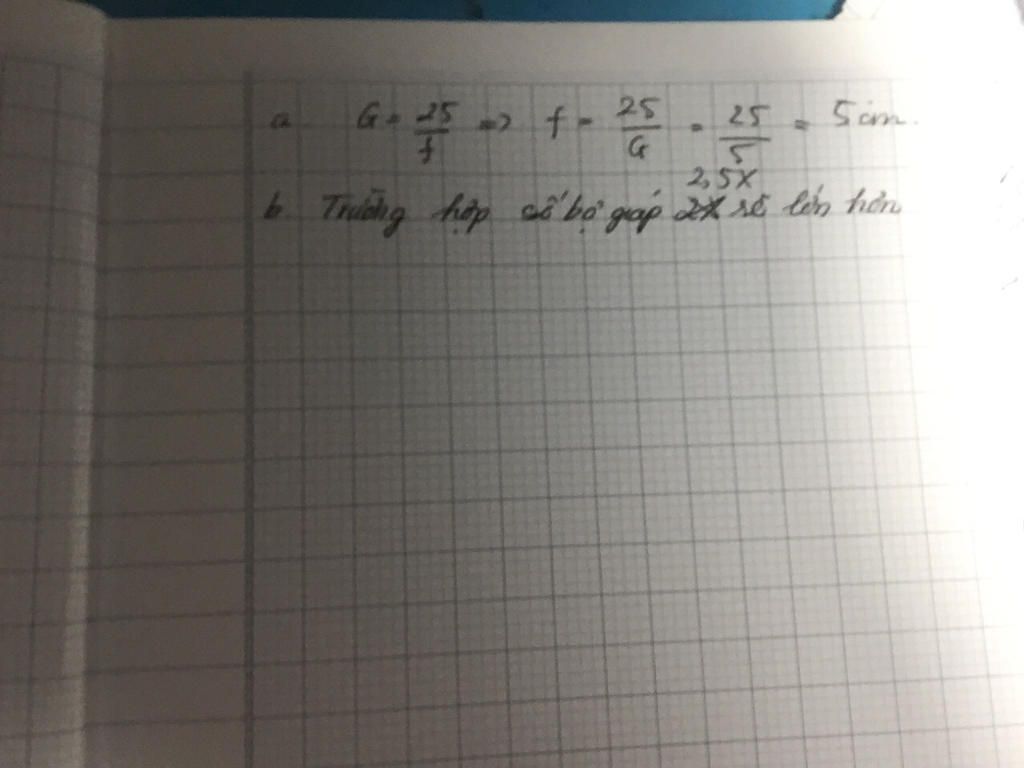 a G = 25/f => f = 25/G = 25/5 = 5 cm.
2,5X
b Trường hợp số bộ giáp 2X sẽ lớn hơn